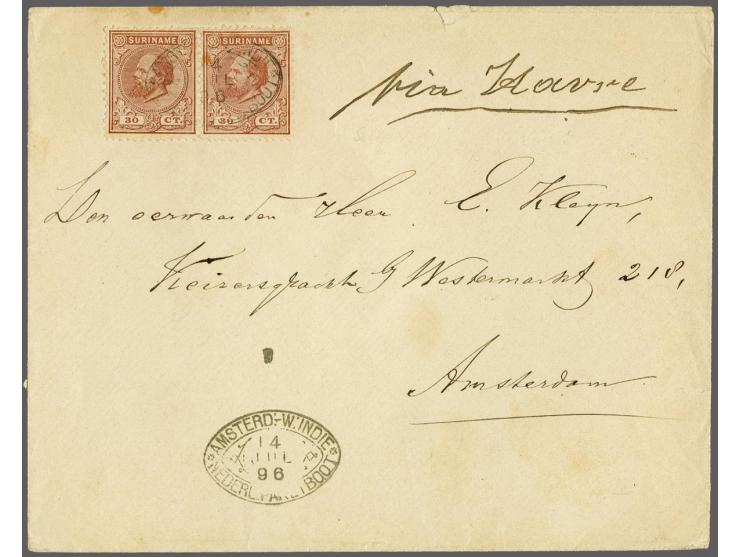 SURINAME SURINAME
30 CT. 30 CT.
via Havre
Den eerwaarden Heer E. Kleyn,
Keizersgracht b/ Westermarkt 218,
Amsterdam
AMSTERD:-W.INDIE
14
JUL
96
NEDERL.PAKETBOOT